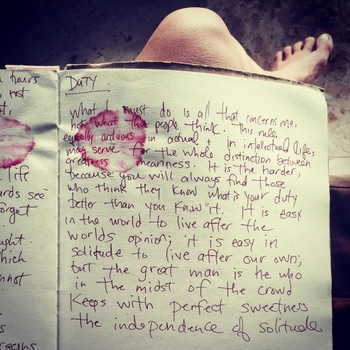 hours
not
DUTY
What I must do is all that concerns me,
not what the people think. This rule,
equally arduous in actual & in intellectual life,
may serve for the whole distinction between
greatness meanness. It is the harder,
because you will always find those
life
who think they know what is your duty
ards see
better than you know it. It is easy
orget
in the world to live after the
worlds opinion; it is easy in
ught.
solitude to live after our own;
hich
but the great man is he who
nnot
in the midst of the crowd
Keeps with perfect sweetness
the independence of solitude.